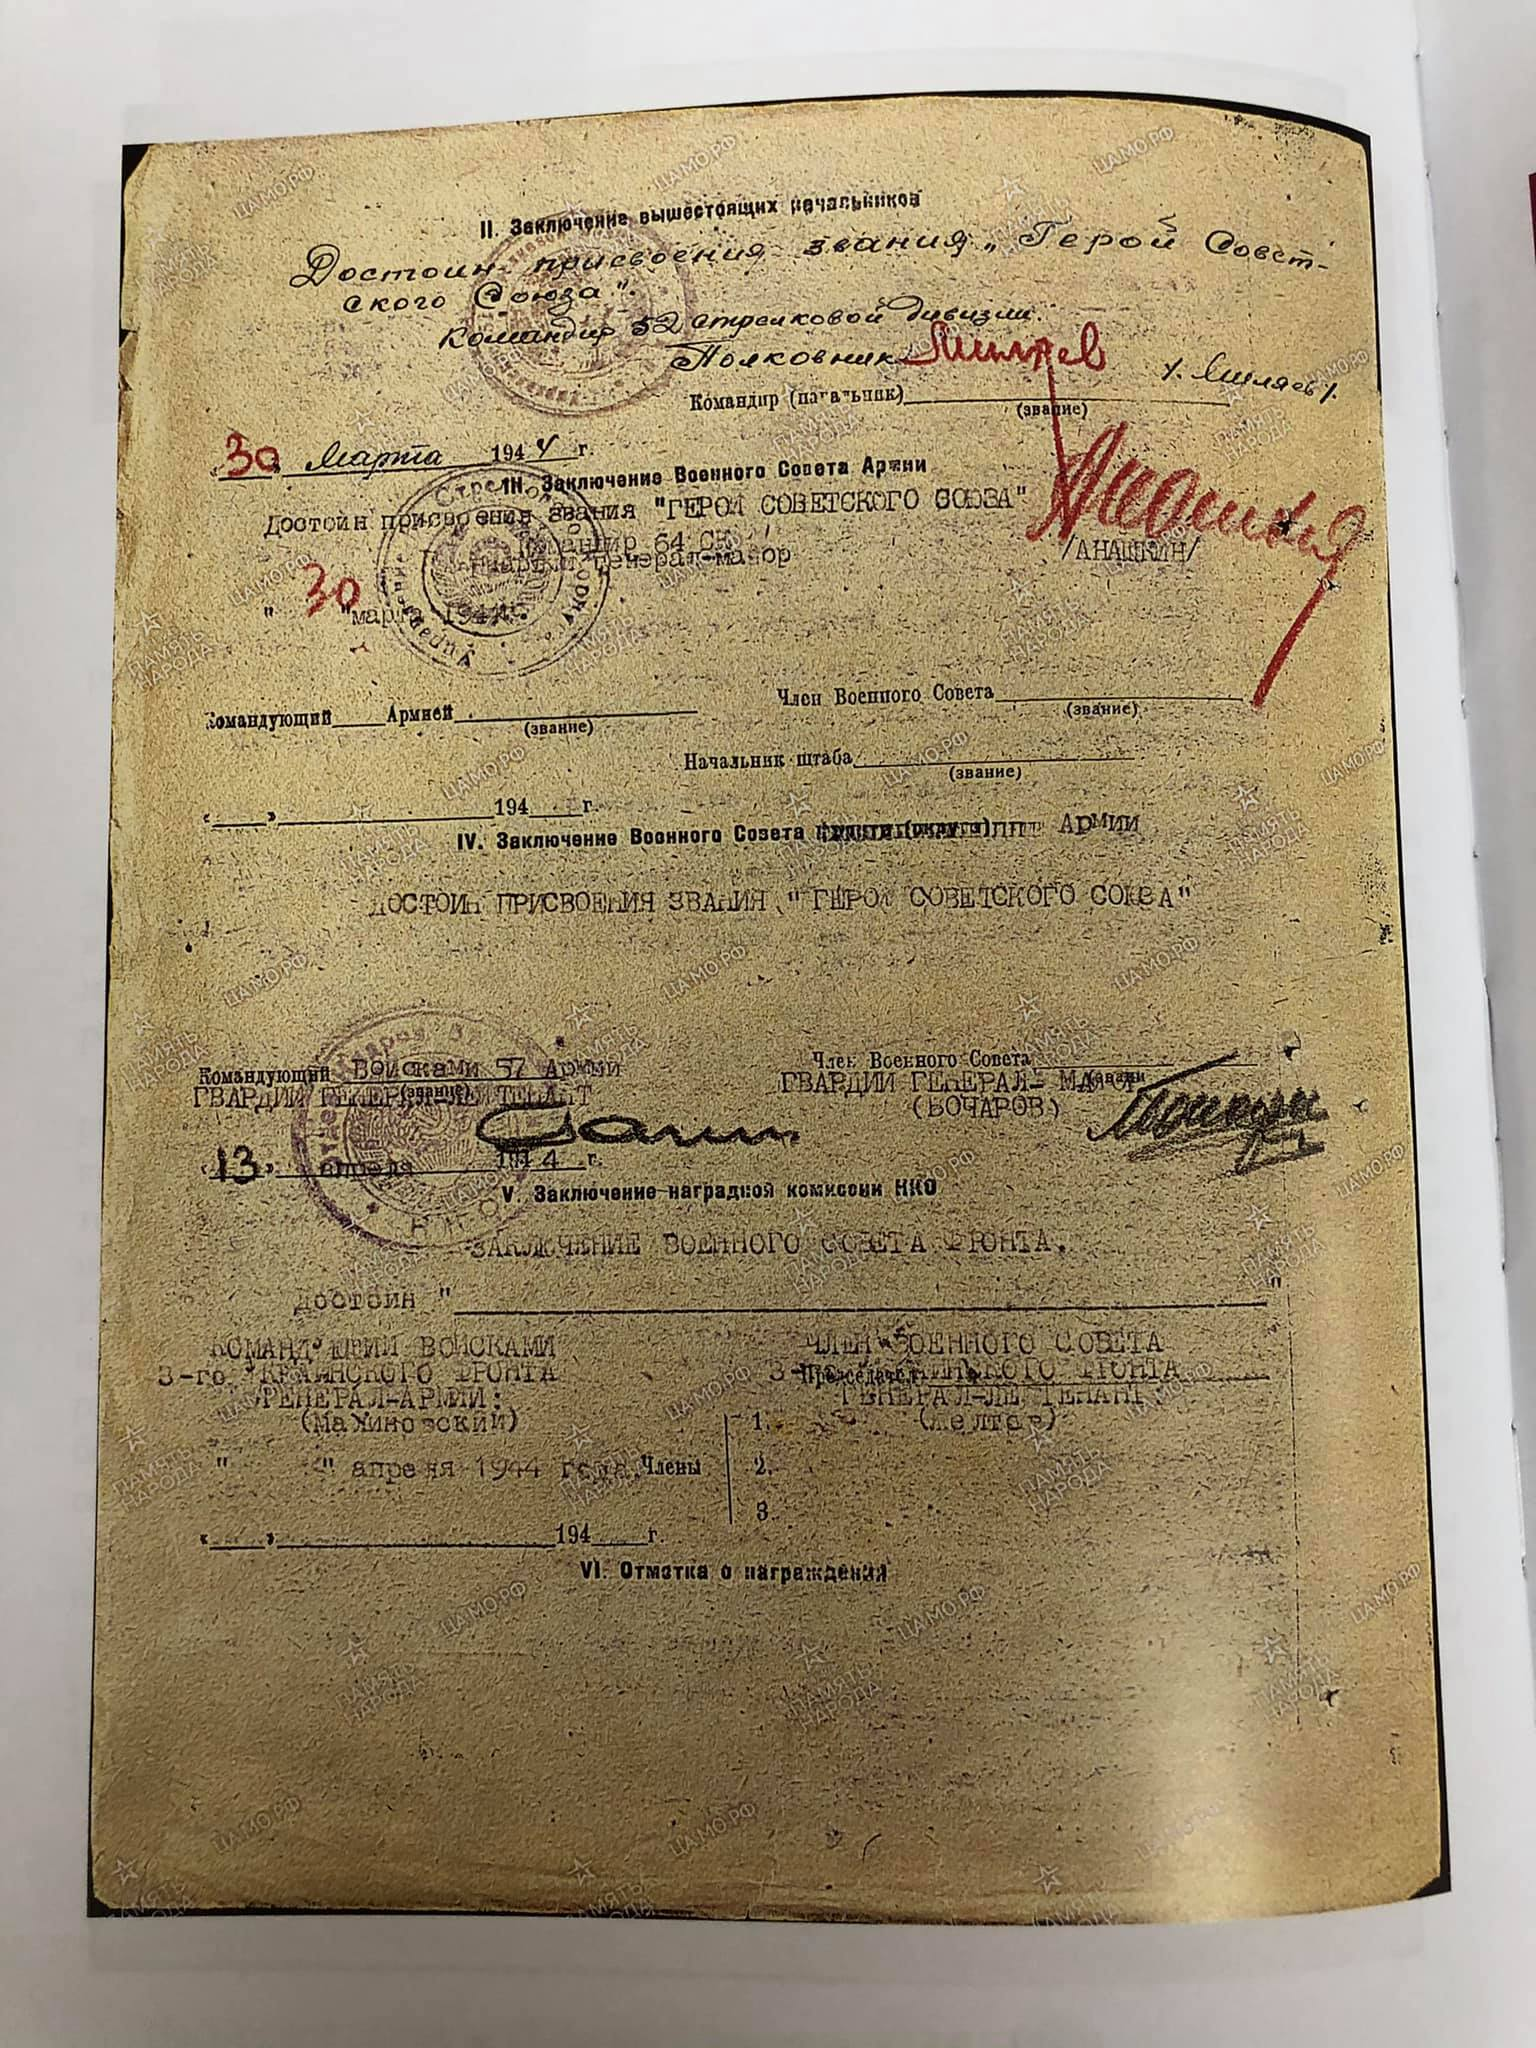 II. Заключение вышестоящих начальников
Достоин присвоения звания „Герой Совет-
ского Союза".
Командир 52 стрелковой дивизии.
Полковник /. Миляев /.
Командир (начальник)
(звание)
30 марта 1944 г.
III. Заключение Военного Совета Армии
Достоин присвоения звания "ГЕРОЙ СОВЕТСКОГО СОЮЗА"
Командир 64 СК
Гвардии генерал-майор /АНАШКИН/
" 30 "марта 1944г.
Член Военного Совета
(звание)
Командующий Армией
(звание)
Начальник штаба
(звание)
« » 194 г.
IV. Заключение Военного Совета Армии
ДОСТОИН ПРИСВОЕНИЯ ЗВАНИЯ "ГЕРОЙ СОВЕТСКОГО СОЮЗА"
Командующий Войсками 57 Армии
(звание)
ГВАРДИИ ГЕНЕРАЛ-ЛЕЙТЕНАНТ
Член Военного Совета
ГВАРДИИ ГЕНЕРАЛ- МАЙОР
(БОЧАРОВ)
«13» апреля 1944 г.
V. Заключение наградной комиссии НКО
ЗАКЛЮЧЕНИЕ ВОЕННОГО СОВЕТА ФРОНТА.
ДОСТОИН " "
КОМАНДУЮЩИЙ ВОЙСКАМИ
3-го УКРАИНСКОГО ФРОНТА
ГЕНЕРАЛ-АРМИИ:
(Малиновский)
ЧЛЕН ВОЕННОГО СОВЕТА
3-го УКРАИНСКОГО ФРОНТА
Председатель
ГЕНЕРАЛ-ЛЕЙТЕНАНТ
(Желтов)
" " апреля 1944 года.
Члены
1.
2.
3.
« » 194 г.
VI. Отметка о награждении
ПАМЯТЬ НАРОДА
ЦАМО.РФ